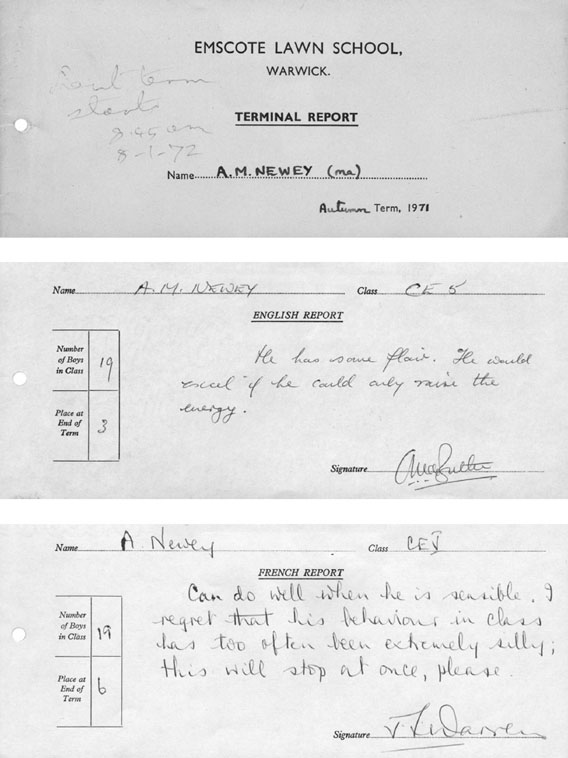 EMSCOTE LAWN SCHOOL,
WARWICK.
Lent term
starts
8.45 am
8-1-72
TERMINAL REPORT
Name A.M. NEWEY (ma)
Autumn Term, 1971
Name A.M. NEWEY Class CE 5
ENGLISH REPORT
Number
of Boys
in Class
19
He has some flair. He would
excel if he could only raise the
energy.
Place at
End of
Term
3
Signature
Name A. Newey Class CE5
FRENCH REPORT
Can do well when he is sensible. I
regret that his behaviour in class
has too often been extremely silly;
this will stop at once, please.
Number
of Boys
in Class
19
Place at
End of
Term
6
Signature Warren